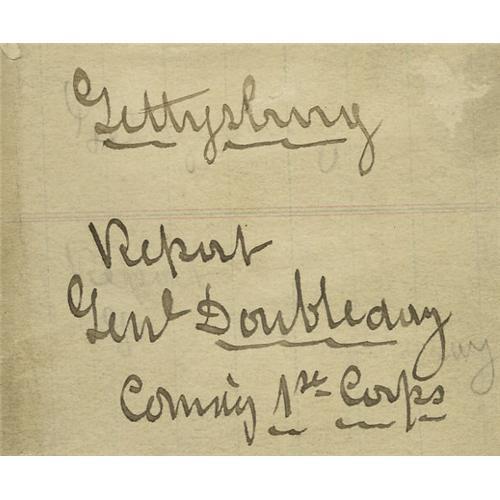 Gettysburg
Report
Genl Doubleday
Comd'g 1st Corps